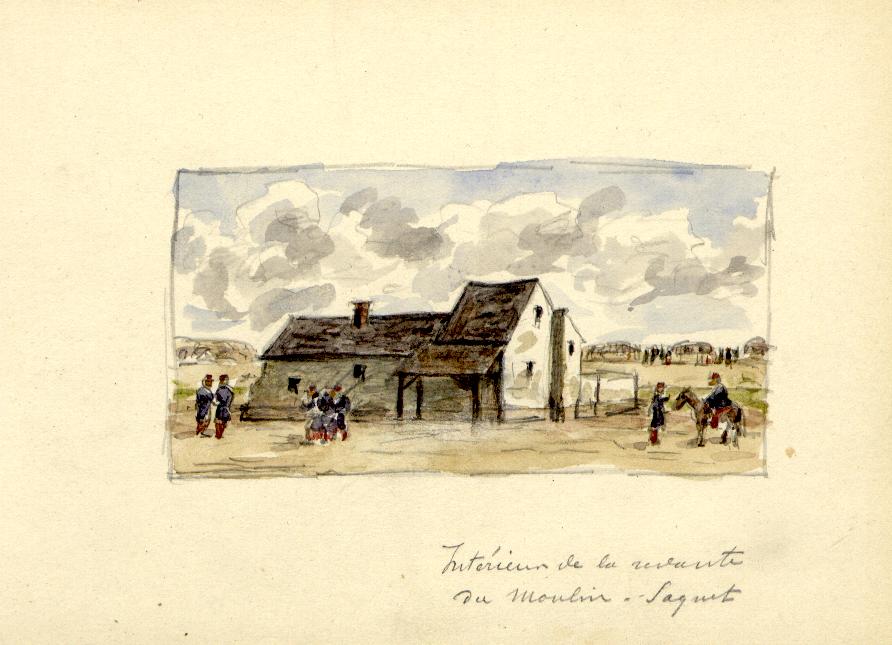 Intérieur de la redoute
du Moulin-Saquet